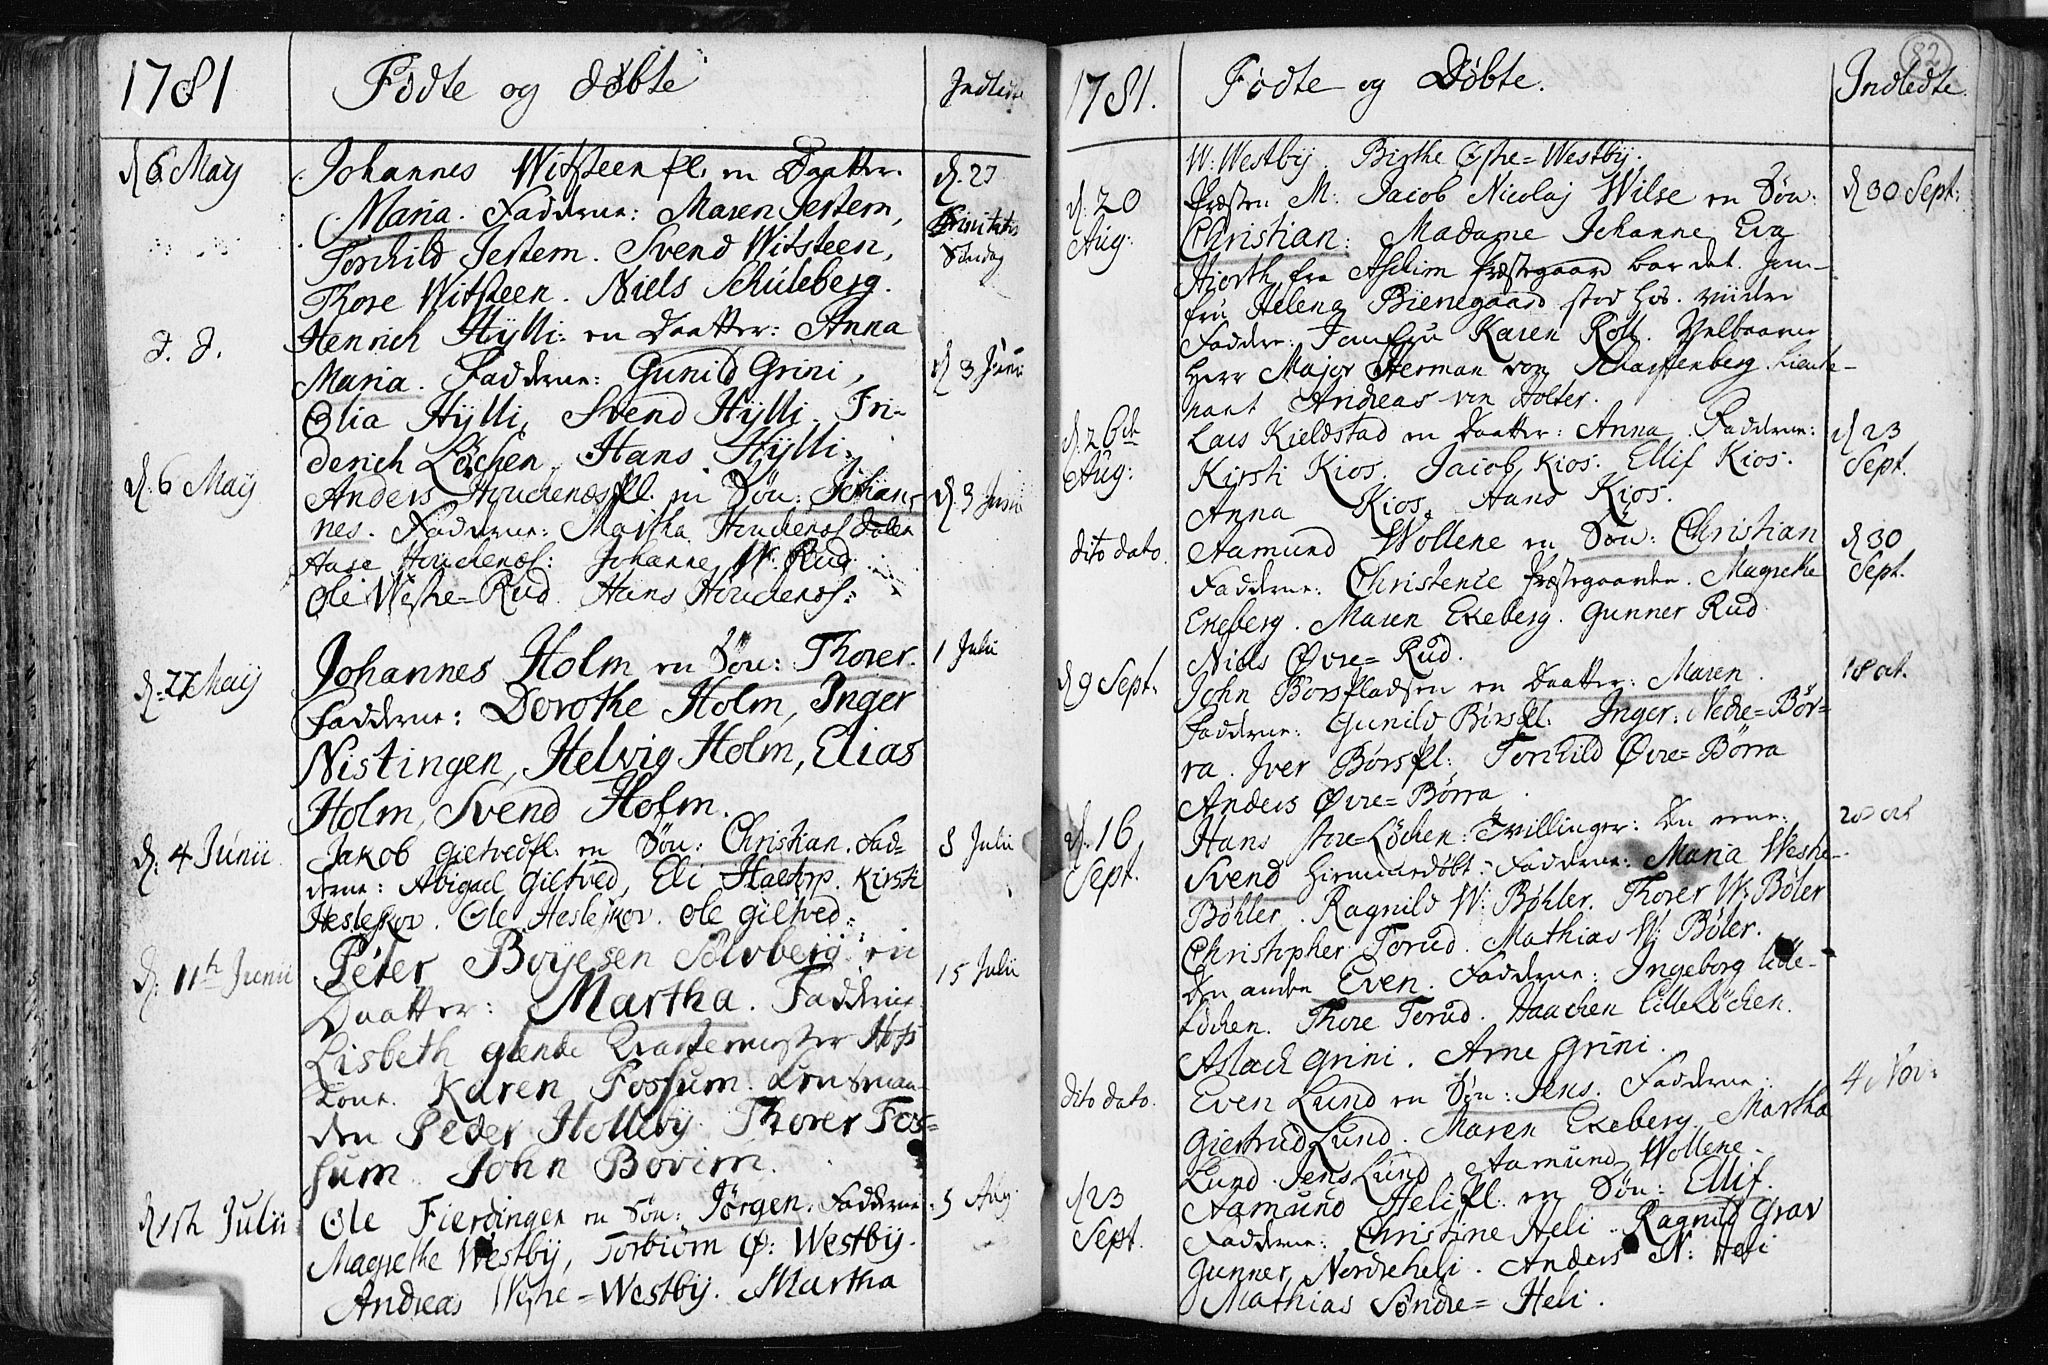 1781
Fødte og døbte
Indledte
d. 6 Maÿ
Johannes Witsteen pl. en Daatter.
Maria. Fadderne: Maren Jestem,
Torchild Jestem. Svend Witsteen,
Thore Witsteen. Niels Schuleberg.
d. 27
Trinitatis
Søndag
d. d.
Henrich Hÿlli: en Daatter: Anna
Maria. Fadderne: Gunild Grini,
Olia Hÿlli, Svend Hÿlli. Fri-
derich Løchen, Hans Hÿlli.
d. 3 Junii
d. 6 Maÿ
Anders Houchenæs pl. en Søn: Johan-
nes. Fadderne: Martha Houchenæs
Aase Houchenæs: Johanne W. Rud
Ole Westre=Rud. Hans Houchenæs:
d. 3 Junii
d. 27 Maÿ
Johannes Holm en Søn: Thorer.
Fadderne: Dorothe Holm, Inger
Nistingen, Helvig Holm, Elias
Holm, Svend Holm.
1 Julii
d. 4 Junii
Jakob Gieltved pl. en Søn: Christian. Fad=
derne: Abigael Gieltved, Eli Haetorp. Kirsti
Hesleskov. Ole Hesleskov. Ole Gieltved:
8 Julii
d. 11te Junii
Peter Boyesen Solvberg: en
Daatter: Martha. Fadderne
Lisbeth Glende Qvartermester Hops
Kone. Karen Fossum. Lensman-
den Peder Hollebÿ. Thorer Fos=
sum. John Bovim.
15 Julii
d. 1ste Julii
Ole Fierdingen en Søn: Jørgen. Fadderne:
Magrethe Westbÿ, Torbiørn Ø: Westbÿ.
Andreas Westre=Westbÿ. Martha
5 Aug.
82
1781.
Fødte og Døbte.
Indledte.
W: Westbÿ. Birthe Østre=Westbÿ.
d. 20
Aug:
Præsten M: Jacob Nicolaj Wilse en Søn:
Christian: Madame Johanne Eva
Hiorth fra Askim Præstegaard bar det. Jom-
fru Helena Bienegaard stod hos. videre
Faddere: Jomfru Karen Rolt. Velbaarne
Herr Major Herman von Scharffenberg. Lieute-
nant Andreas von Holter.
d. 30 Sept:
d. 26de
Aug:
Lars Kieldstad en Daatter: Anna. Fadderne:
Kirsti Kios. Jacob Kios. Ellif Kios.
Anna Kios. Hans Kios.
d. 23
Sept.
dito dato.
Aamund Wollene en Søn: Christian
Fadderne: Christence Præstegaarden. Magrethe
Ekeberg. Maren Ekeberg. Gunner Rud
Niels Øvre=Rud.
d. 30
Sept.
d. 9 Sept.
John Børspladsen en Daatter: Maren.
Fadderne: Gunild Børspl. Inger: Nedre=Bør=
ra. Iver Børspl: Torchild Øvre=Børra
Anders Øvre=Børra.
18 oct.
d. 16
Sept.
Hans Store=Løchen: Tvillinger: Den eene:
Svend hiemmedøbt. Fadderne: Maria Westre-
Bøhler. Ragnild W: Bøhler. Thorer W: Bøler
Christopher Torud. Mathias W: Bøler.
Den anden Even. Fadderne: Ingeborg Lille-
Løchen. Thore Torud. Haachen LilleLøchen.
Aslach Grini. Arne Grini.
20 oct
dito dato.
Even Lund en Søn: Jens. Fadderne:
Giertrud Lund. Maren Ekeberg. Martha
Lund. Jens Lund. Aamund Wollene.
4 Nov:
d. 23
Sept.
Aamund Heli pl. en Søn: Ellif.
Fadderne: Christine Heli. Ragnild Grav
Gunner Nordreheli. Anders N: Heli
Mathias Søndre=Heli.